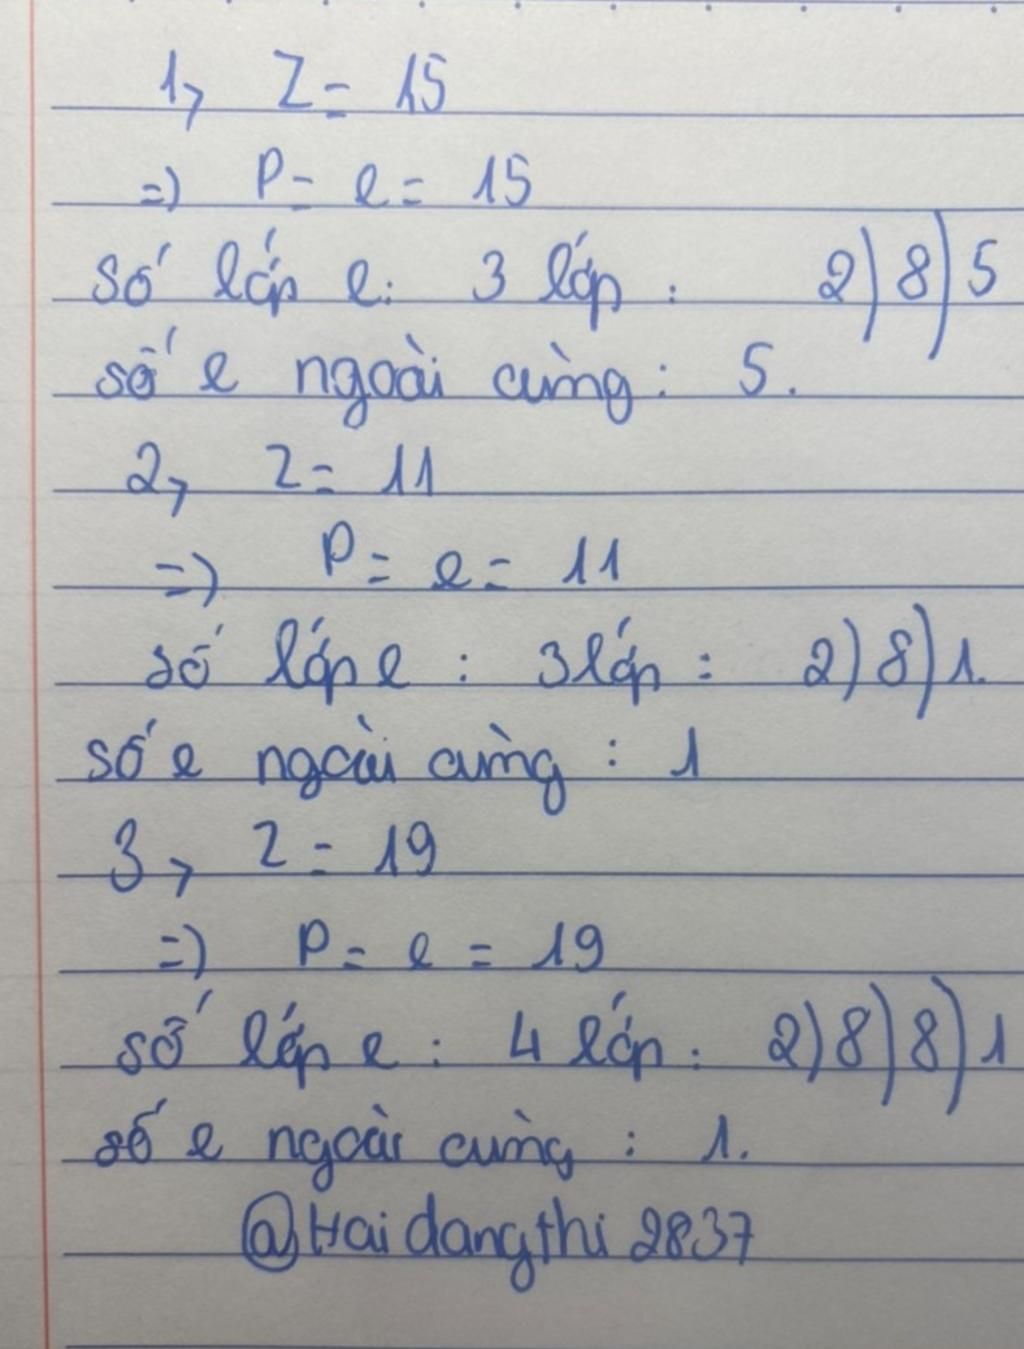 1, Z = 15
=) P = e = 15
số lớp e: 3 lớp : 2) 8) 5
số e ngoài cùng : 5.
2, Z = 11
=) P = e = 11
số lớp e : 3 lớp : 2) 8) 1.
số e ngoài cùng : 1
3, Z = 19
=) P = e = 19
số lớp e : 4 lớp : 2) 8) 8) 1
số e ngoài cùng : 1.
@Haidangthi2837